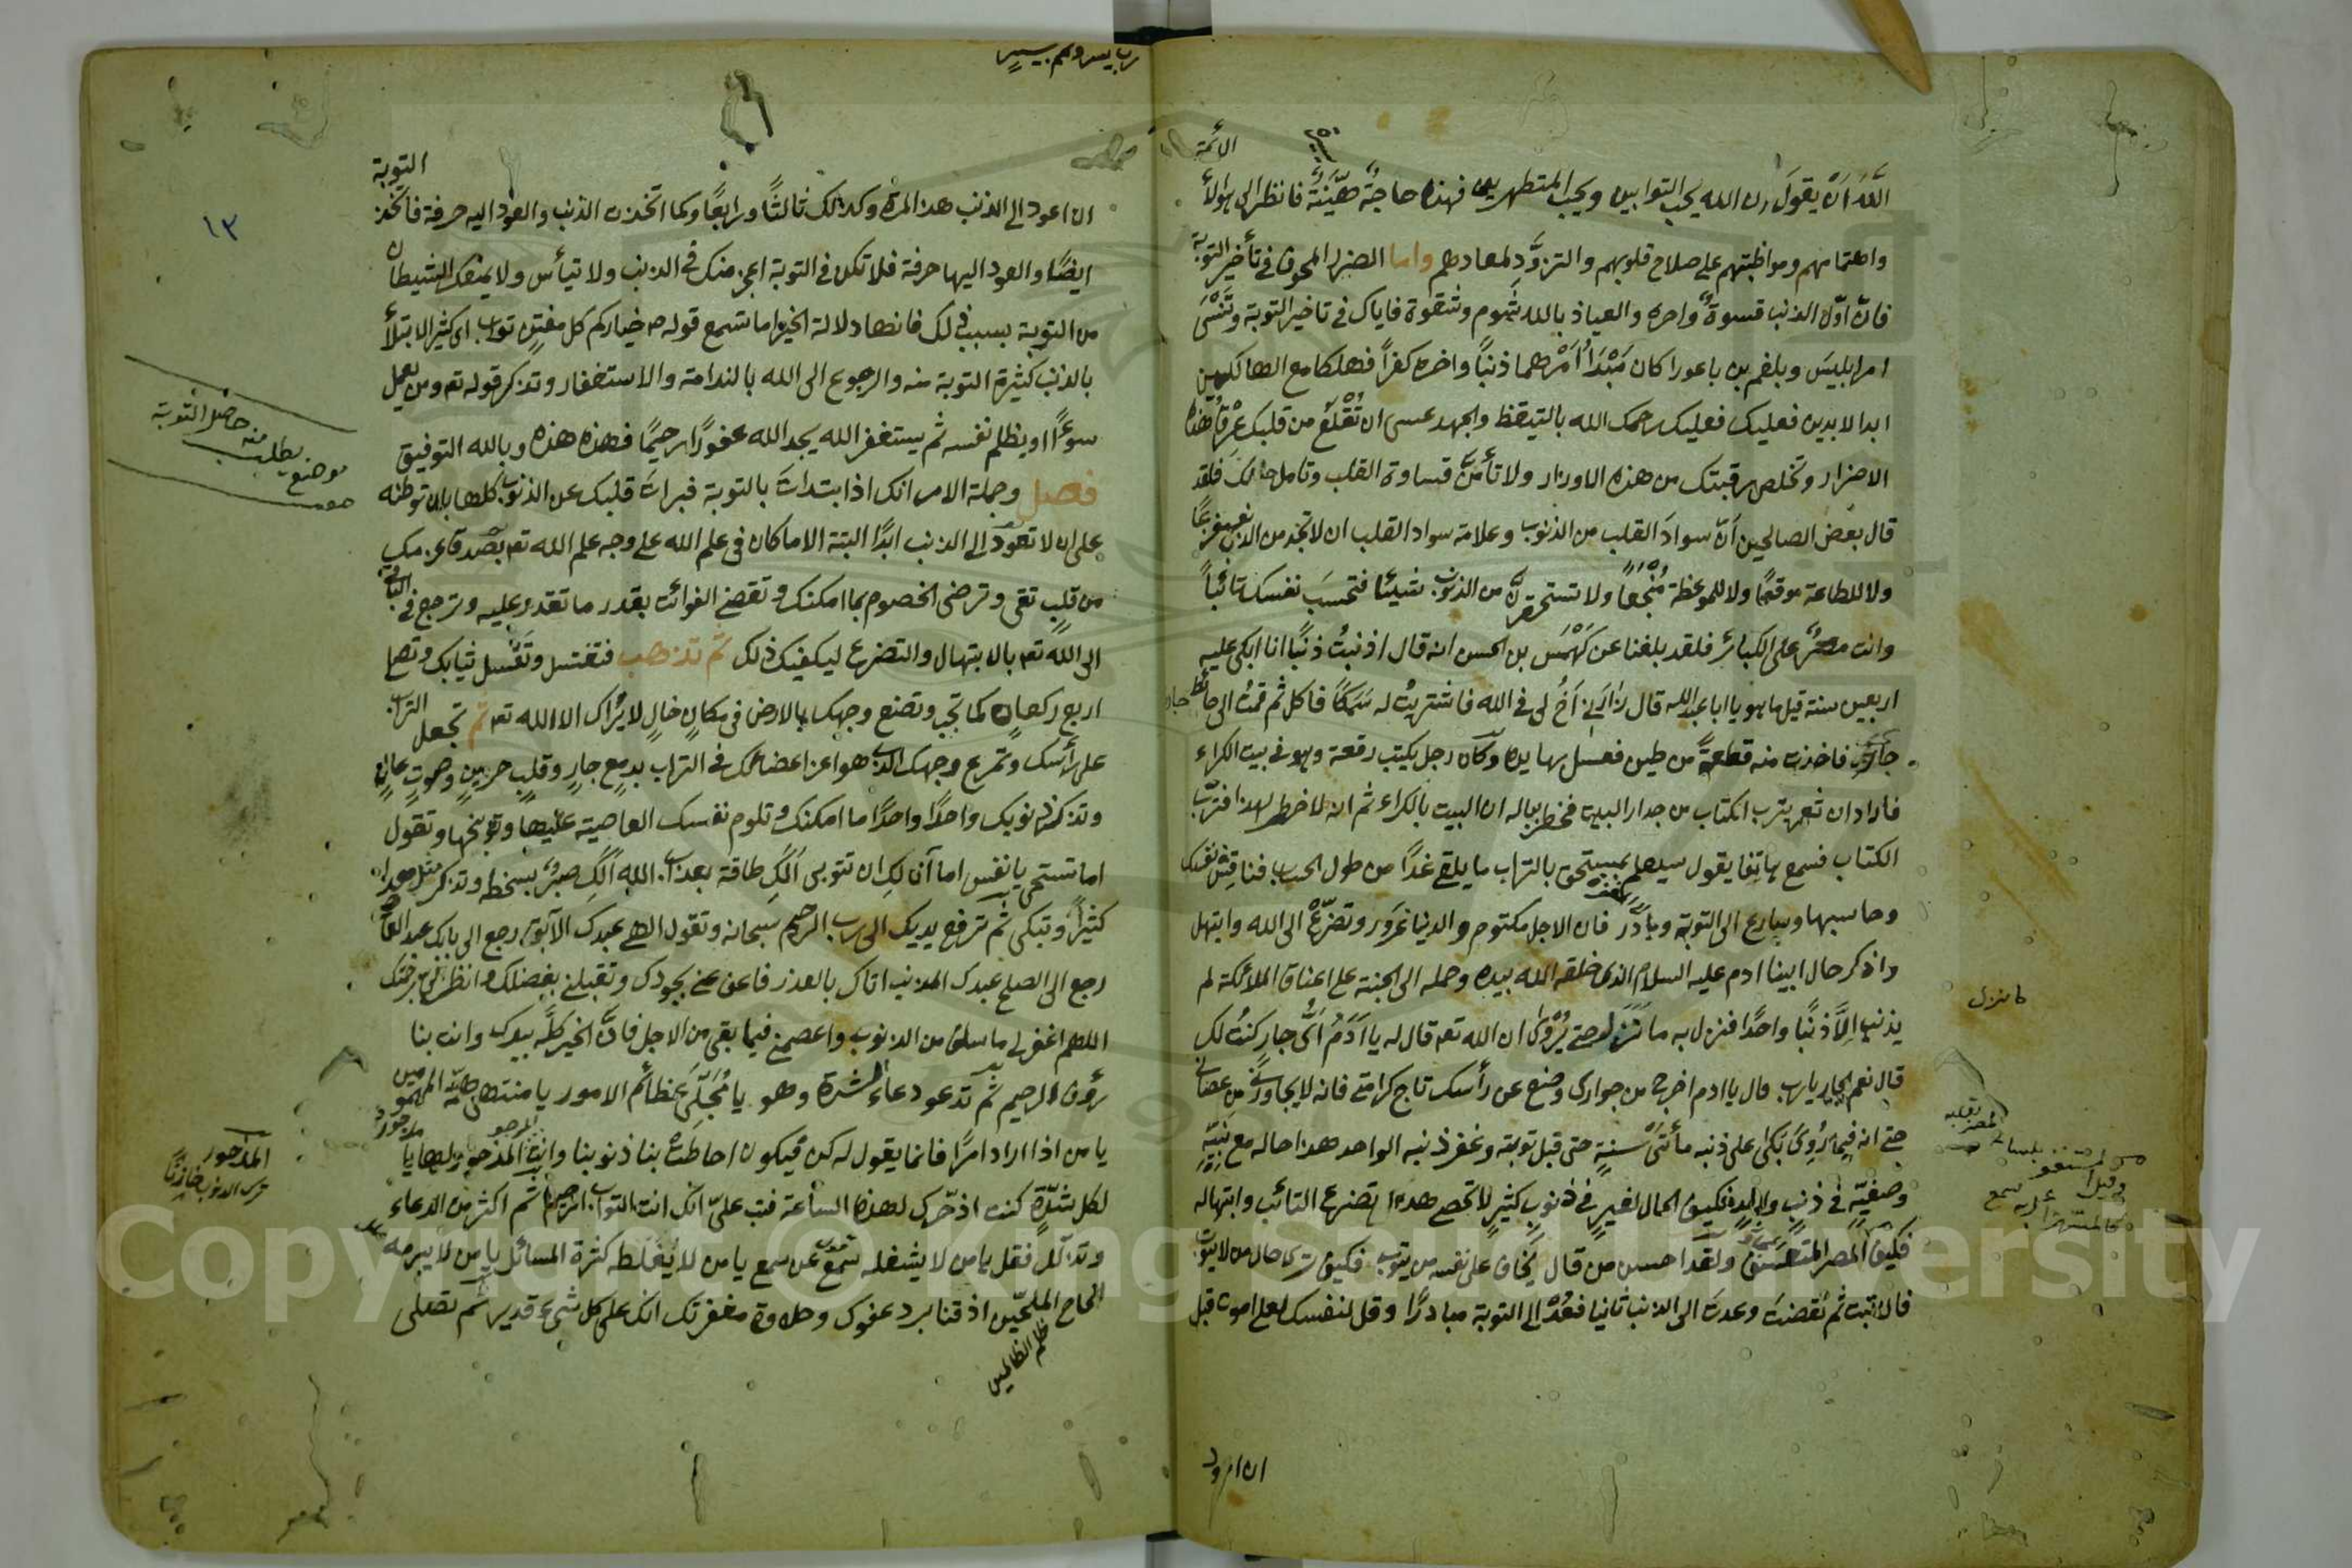 الأئمة
الله أن يقول ان الله يحب التوابين ويحب المتطهرين فهذه حاجة هيّنة فانظر الى هؤلاء
واهتمامهم ومواظبتهم على صلاح قلوبهم والتزوّد لمعادهم واما الضرر المخوف في تأخير التوبة
فانّ اوّل الذنب قسوة واخره والعياذ بالله شوم وشقوة فاياك في تاخير التوبة وتنسى
امر ابليس وبلعم بن باعورا كان مبدأ امرهما ذنباً واخره كفراً فهلكا مع الهالكين
ابد الابدين فعليك فعليك رحمك الله بالتيقظ والجهد عسى ان تقلع من قلبك عرق هذا
الاضرار وتخلص رقبتك من هذه الاوزار ولا تأمنّ قساوة القلب وتامل حالك فلقد
قال بعض الصالحين انّ سواد القلب من الذنوب وعلامة سواد القلب ان لا تجد من الذنب مفزعًا
ولا للطاعة موقعًا ولا للموعظة منجعًا ولا تستحقرنّ من الذنوب شيئا فتحسب نفسك تائباً
وانت مصرّ على الكبائر فلقد بلغنا عن كهمس بن الحسن انه قال اذنبتُ ذنبًا انا ابكى عليه
اربعين سنة قيل ما هو يا ابا عبدالله قال زارني أخ لى في الله فاشتريتُ له سمكًا فاكل ثم قمتُ الى حائط
جارى فاخذت منه قطعةً من طين فغسل بها يده وكان رجل يكتب رقعة وهو في بيت الكراء
فاراد ان يترب الكتاب من جدار البيت فخطر بباله ان البيت بالكراء ثم انه لا خطر لهذا فترّب
الكتاب فسمع هاتفا يقول سيعلم المستخف بالتراب ما يلقى غدًا من طول الحساب فناقش نفسك
وحاسبها وسارع الى التوبة وبادر فان الاجل مكتوم والدنيا غرور وتضرّع الى الله وابتهل
واذكر حال ابينا ادم عليه السلام الذى خلقه الله بيده وحمله الى الجنة على اعناق الملائكة لم
يذنب الاّ ذنبًا واحدًا فنزل به ما نزل حتى يُروى ان الله تعه قال له يا آدم اىّ جار كنتُ لك
قال نعم الجار يارب قال يا ادم اخرج من جوارى وضع عن رأسك تاج كرامتى فانه لا يجاورنى من عصانى
حتى انه فيما رُوى بكى على ذنبه مأتى سنةٍ حتى قبل توبته وغفر ذنبه الواحد هذا حاله مع نبيّه
وصفيّه في ذنب واحد فكيف الحال لغيره في ذنوب كثير لا تحصى هذا تضرع التائب وابتهاله
فكيف المصر المتعسف ولقد احسن من قال يخاف على نفسه من يتوب فكيف ترى حال من لا يتوب
فان تبت ثم نقضت وعدت الى الذنب ثانيا فعُدْ الى التوبة مبادرًا وقل لنفسك لعلى اموت قبل
ان اعود
ما نزل
رب يسر وتمم بيسير
التوبة
١٣
ان اعود الى الذنب هذه المرة وكذلك ثالثًا ورابعًا وكما اتخذت الذنب والعود اليه حرفة فاتخذ
ايضًا والعود اليها حرفة فلا تكن في التوبة اعجز منك في الذنب ولا تيأس ولا يمنعك الشيطان
من التوبة بسبب ذلك فانها دلالة الخير اما تسمع قوله ص خياركم كل مفتن تواب اى كثير الابتلاء
بالذنب كثيرة التوبة منه والرجوع الى الله بالندامة والاستغفار وتذكر قوله تعه ومن يعمل
سوءًا او يظلم نفسه ثم يستغفر الله يجد الله غفورًا رحيمًا فهذه هذه وبالله التوفيق
فصل وجملة الامر انك اذا ابتدات بالتوبة فبرات قلبك عن الذنوب كلها بان توطنه
على ان لا تعود الى الذنب ابدًا البتة الا ما كان في علم الله على وجه علم الله تعه بصدق عزمك
من قلب تقى وترضى الخصوم بما امكنك وتقضى الفوائت بقدر ما تقدر عليه وترجع في الباقى
الى الله تعه بالابتهال والتضرع ليكفيك ذلك ثم تذهب فتغتسل وتغسل ثيابك وتصلى
اربع ركعات كما تجب وتضع وجهك بالارض في مكان خالٍ لا يراك الا الله تعه ثم تجعل التراب
على رأسك وتمرغ وجهك الذى هو اعز اعضائك في التراب بدمع جارٍ وقلب حزين وصوت عالٍ
وتذكر ذنوبك واحدًا واحدًا ما امكنك وتلوم نفسك العاصية عليها وتوبخها وتقول
اما تستحى يا نفس اما آن لكِ ان تتوبى ألكِ طاقة بعذاب الله ألكِ صبر بسخط وتذكر مثل هذا
كثيراً وتبكى ثم ترفع يديك الى رب الرحيم سبحانه وتقول الهى عبدك الآبق رجع الى بابك عبدك العاصى
رجع الى الصلح عبدك المذنب اتاك بالعذر فاعف عنى بجودك وتقبلنى بفضلك وانظر الى برحمتك
اللهم اغفر لى ما سلف من الذنوب واعصمنى فيما بقى من الاجل فانّ الخير كلّه بيدك وانت بنا
رؤف رحيم ثم تدعو دعاء الشدة وهو يا مُجَلّى عظائم الامور يا منتهى همّة المهمومين
يا من اذا اراد امرًا فانما يقول له كن فيكون احاطت بنا ذنوبنا وانت المذخور لها يا مذخور
لكل شدّة كنت اذخرك لهذه الساعة فتب علىّ انك انت التواب الرحيم ثم اكثر من الدعاء
وتذلّل فقل يا من لا يشغله سمع عن سمع يا من لا يغلطه كثرة المسائل يا من لا يبرمه
الحاح الملحّين اذقنا برد عفوك وحلاوة مغفرتك انك على كل شىء قدير ثم تصلى
موضع يطلب منه حاصل التوبة
المذخور
Copyright © King Saud University